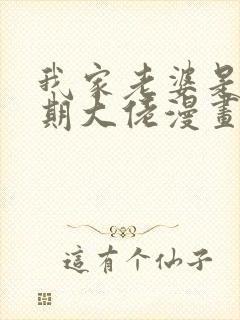 我家老婆是
期大佬漫畫
這有个仙子